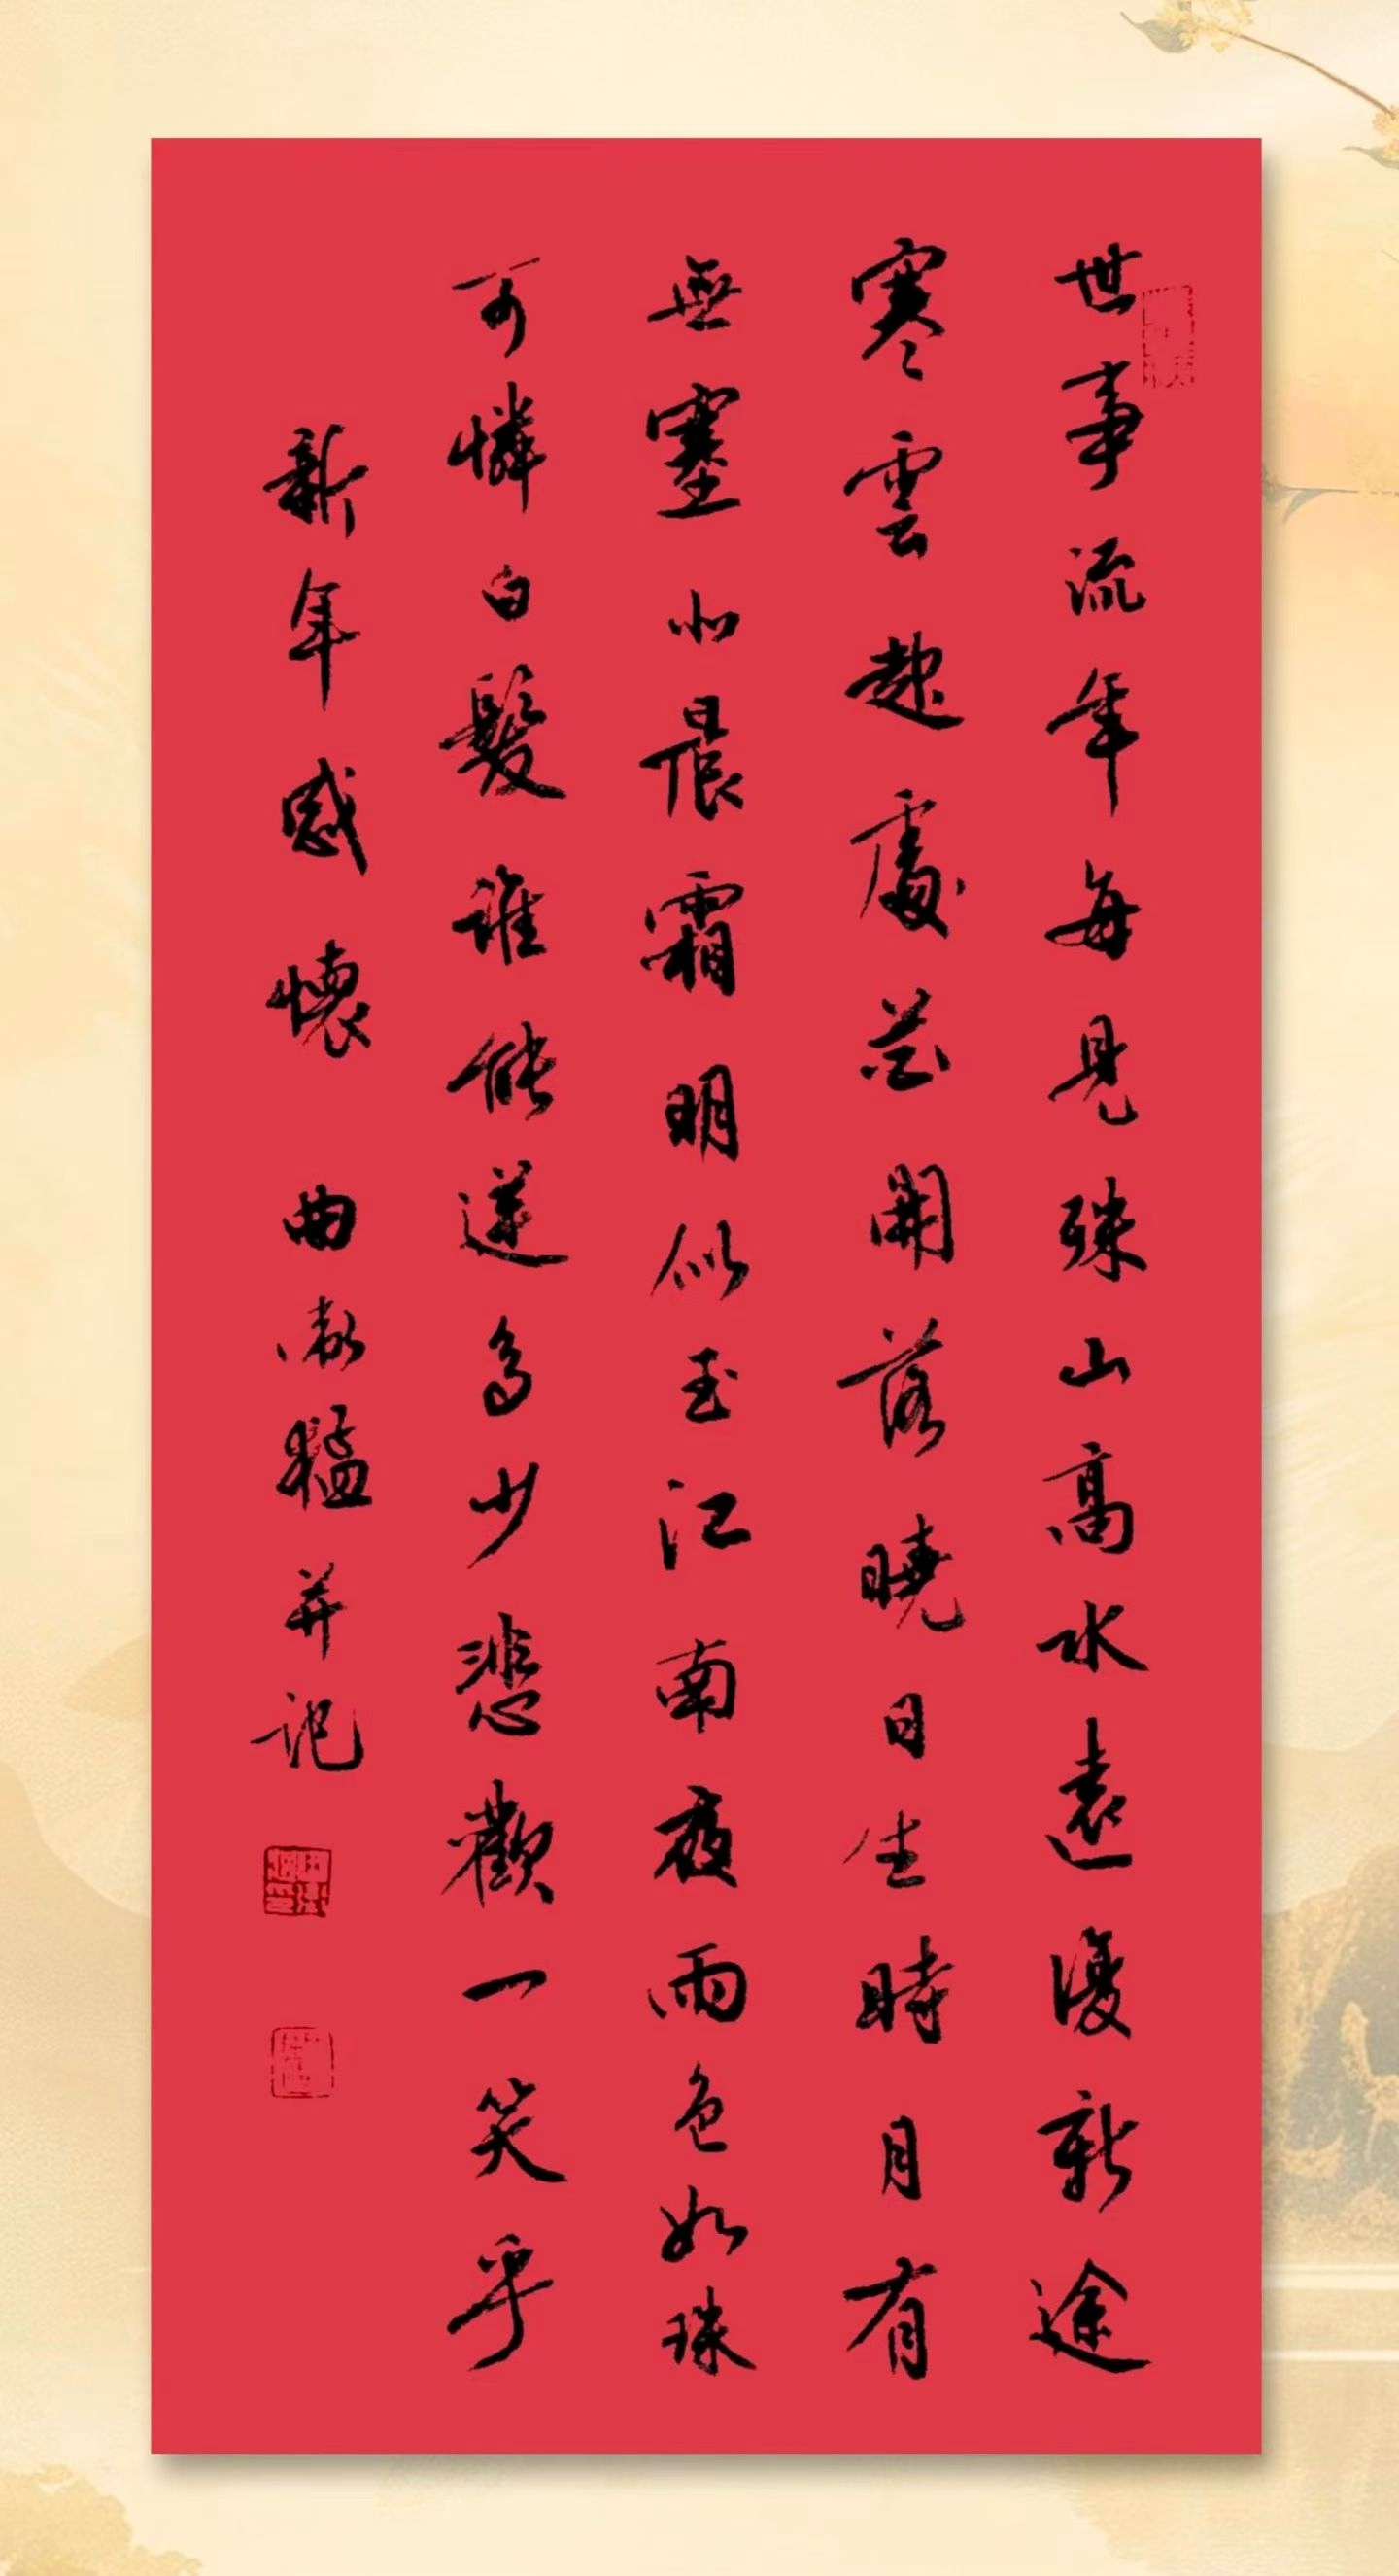 世事流年每見殊山高水遠復新途
寒雲起處花開落曉日生時月有
無塞北晨霜明似玉江南夜雨色如珠
可憐白髮誰能逆多少悲歡一笑乎
新年感懷 曲猛并記